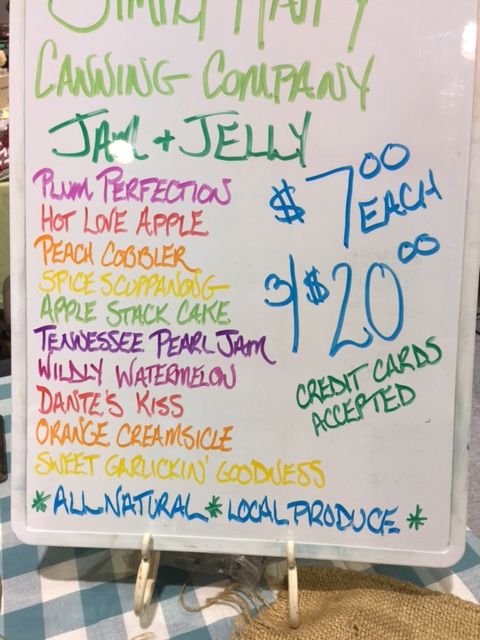 CANNING COMPANY
JAM + JELLY
PLUM PERFECTION
HOT LOVE APPLE
PEACH COBBLER
SPICE SCUPPANONG
APPLE STACK CAKE
TENNESSEE PEARL JAM
WILDLY WATERMELON
DANTE'S KISS
ORANGE CREAMSICLE
SWEET GARLICKIN' GOODNESS
$7.00 EACH
3/$20.00
CREDIT CARDS
ACCEPTED
*ALL NATURAL*LOCAL PRODUCE*